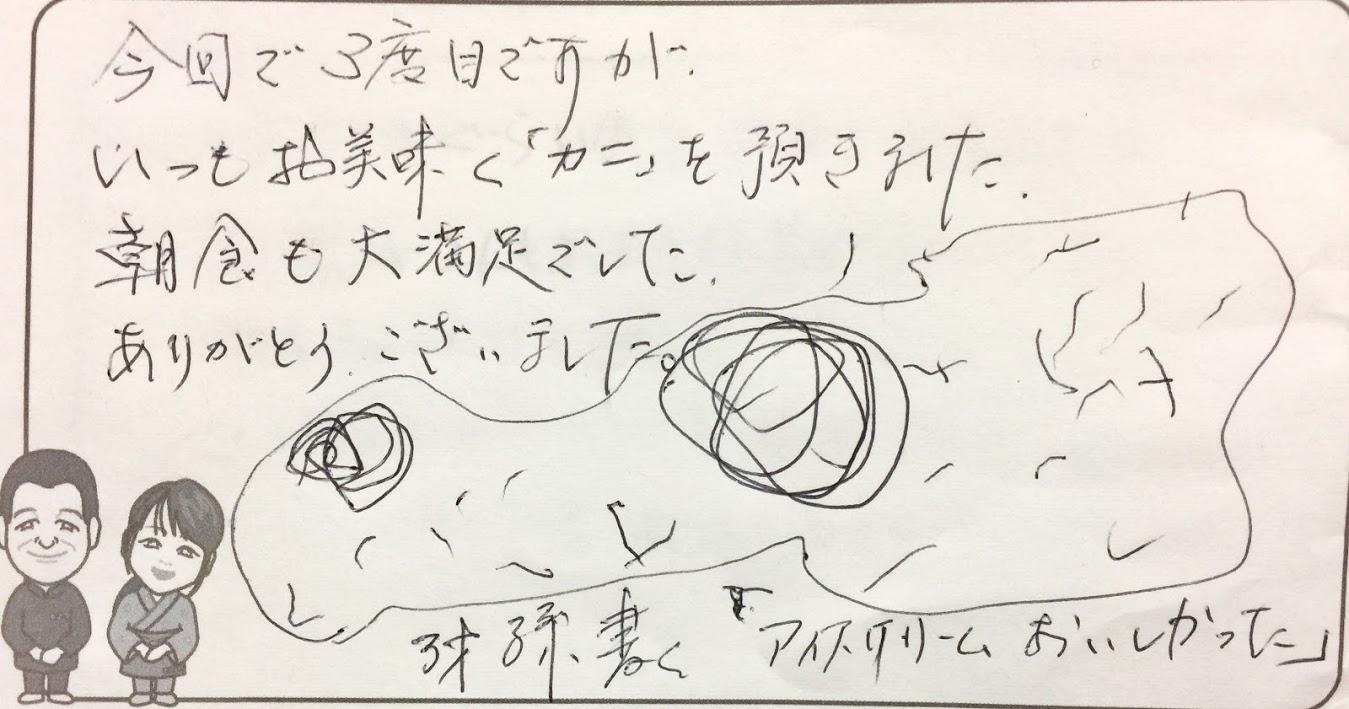 今回で3度目ですが、
いつもお美味く「カニ」を頂きました。
朝食も大満足でした。
ありがとうございました。
3才孫、書く「アイスクリームおいしかった」